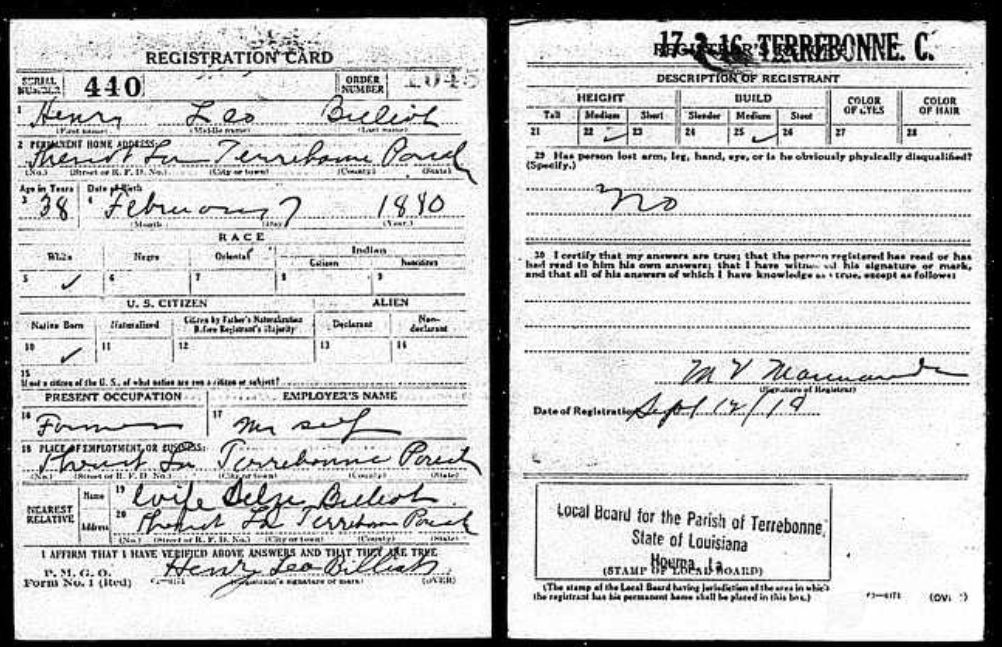 REGISTRATION CARD
SERIAL NUMBER 440 ORDER NUMBER 1045
1 Henry Leo Billiot
(First name) (Middle name) (Last name)
2 PERMANENT HOME ADDRESS:
Theriot La Terrebonne Parish
(No.) (Street or R. F. D. No.) (City or town) (County) (State)
Age in Years Date of Birth
3 38 4 February 7 1880
(Month) (Day) (Year)
RACE
White Negro Oriental Indian
Citizen Noncitizen
5 ✓ 6 7 8 9
U. S. CITIZEN ALIEN
Native Born Naturalized Citizen by Father's Naturalization Before Registrant's Majority Declarant Non-declarant
10 ✓ 11 12 13 14
15
If not a citizen of the U. S., of what nation are you a citizen or subject?
PRESENT OCCUPATION EMPLOYER'S NAME
16 Farmer 17 My self
18 PLACE OF EMPLOYMENT OR BUSINESS:
Theriot La Terrebonne Parish
(No.) (Street or R. F. D. No.) (City or town) (County) (State)
NEAREST RELATIVE
Name 19 wife Billiot
Address 20 Theriot La Terrebonne Parish
(No.) (Street or R. F. D. No.) (City or town) (County) (State)
I AFFIRM THAT I HAVE VERIFIED ABOVE ANSWERS AND THAT THEY ARE TRUE
P. M. G. O.
Form No. 1 (Red) Henry Leo Billiot
(Registrant's signature or mark) (OVER)
17-2-16 TERREBONNE. C.
REGISTRAR'S REPORT
DESCRIPTION OF REGISTRANT
HEIGHT BUILD COLOR OF EYES COLOR OF HAIR
Tall Medium Short Slender Medium Stout
21 22 ✓ 23 24 25 ✓ 26 27 28
29 Has person lost arm, leg, hand, eye, or is he obviously physically disqualified?
(Specify.)
no
30 I certify that my answers are true; that the person registered has read or has
had read to him his own answers; that I have witnessed his signature or mark,
and that all of his answers of which I have knowledge are true, except as follows:
M V
(Signature of Registrar)
Date of Registration Sept 12/18
Local Board for the Parish of Terrebonne,
State of Louisiana
Houma, La.
(STAMP OF LOCAL BOARD)
(The stamp of the Local Board having jurisdiction of the area in which
the registrant has his permanent home shall be placed in this box.)
(OVER)